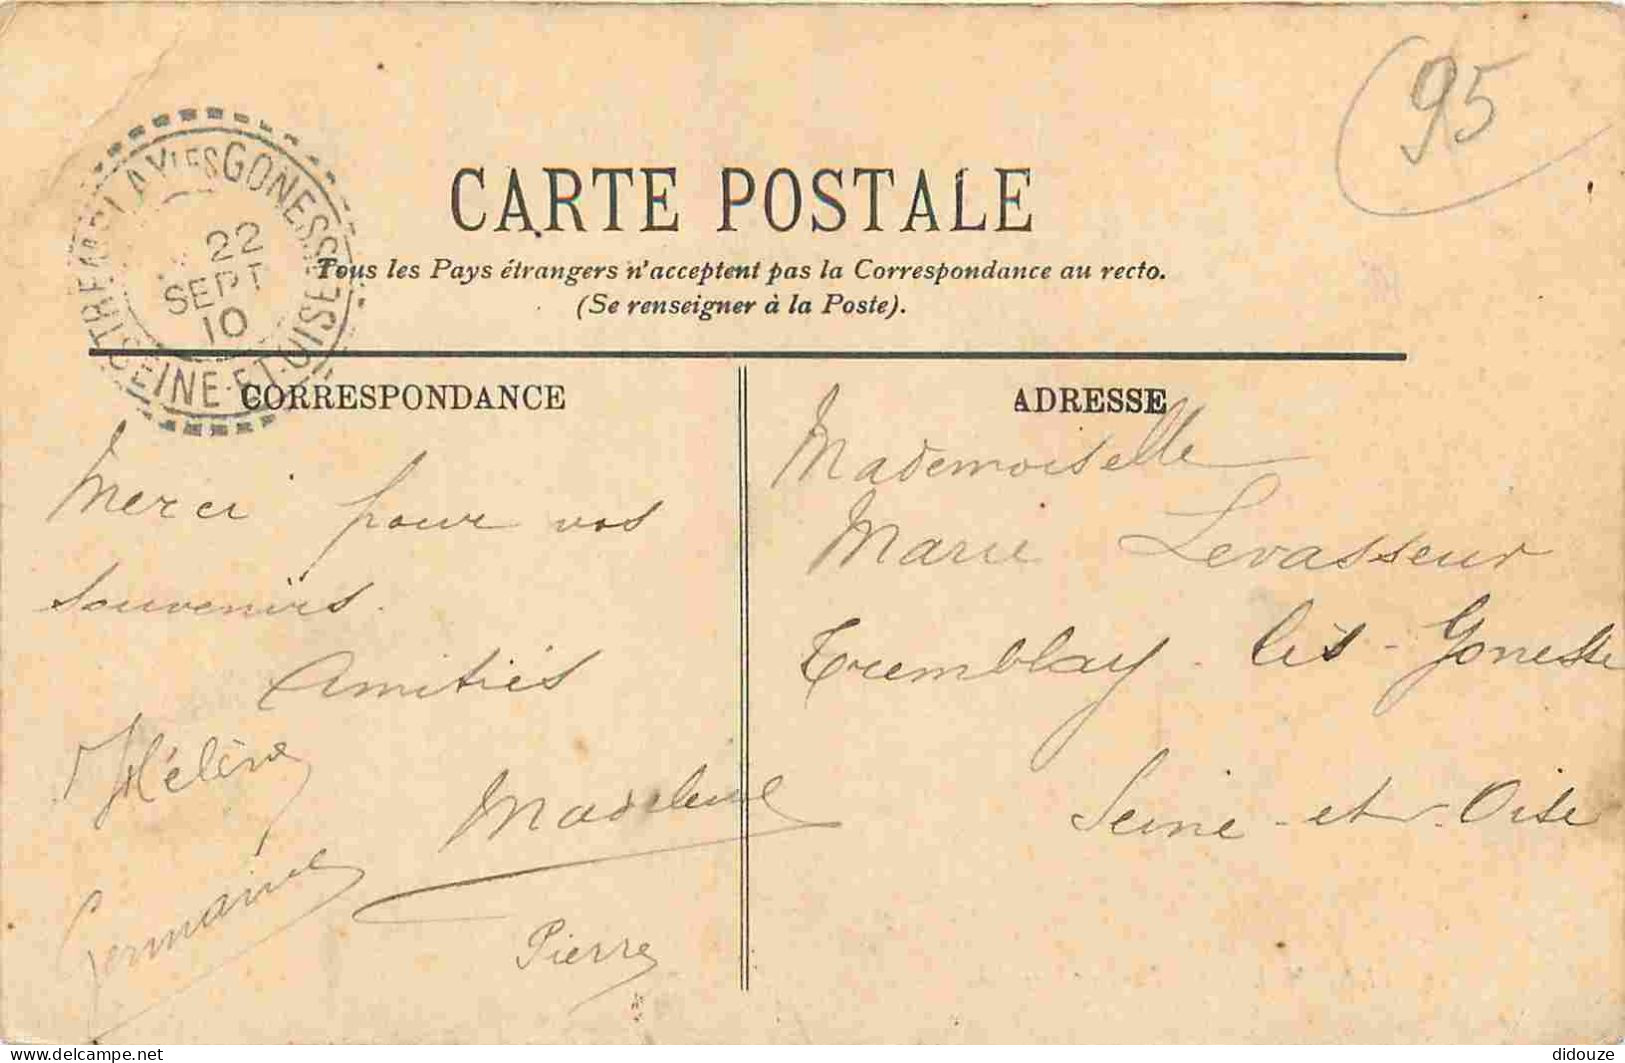 95
TREMBLAY LES GONESSE
SEINE-ET-OISE
22
SEPT
10
CARTE POSTALE
Tous les Pays étrangers n'acceptent pas la Correspondance au recto.
(Se renseigner à la Poste).
CORRESPONDANCE
Merci pour vos
souvenirs.
Amitiés
Hélène
Madeleine
Germaine
Pierre
ADRESSE
Mademoiselle
Marie Levasseur
Tremblay - lès - Gonesse
Seine - et - Oise
delcampe.net
didouze